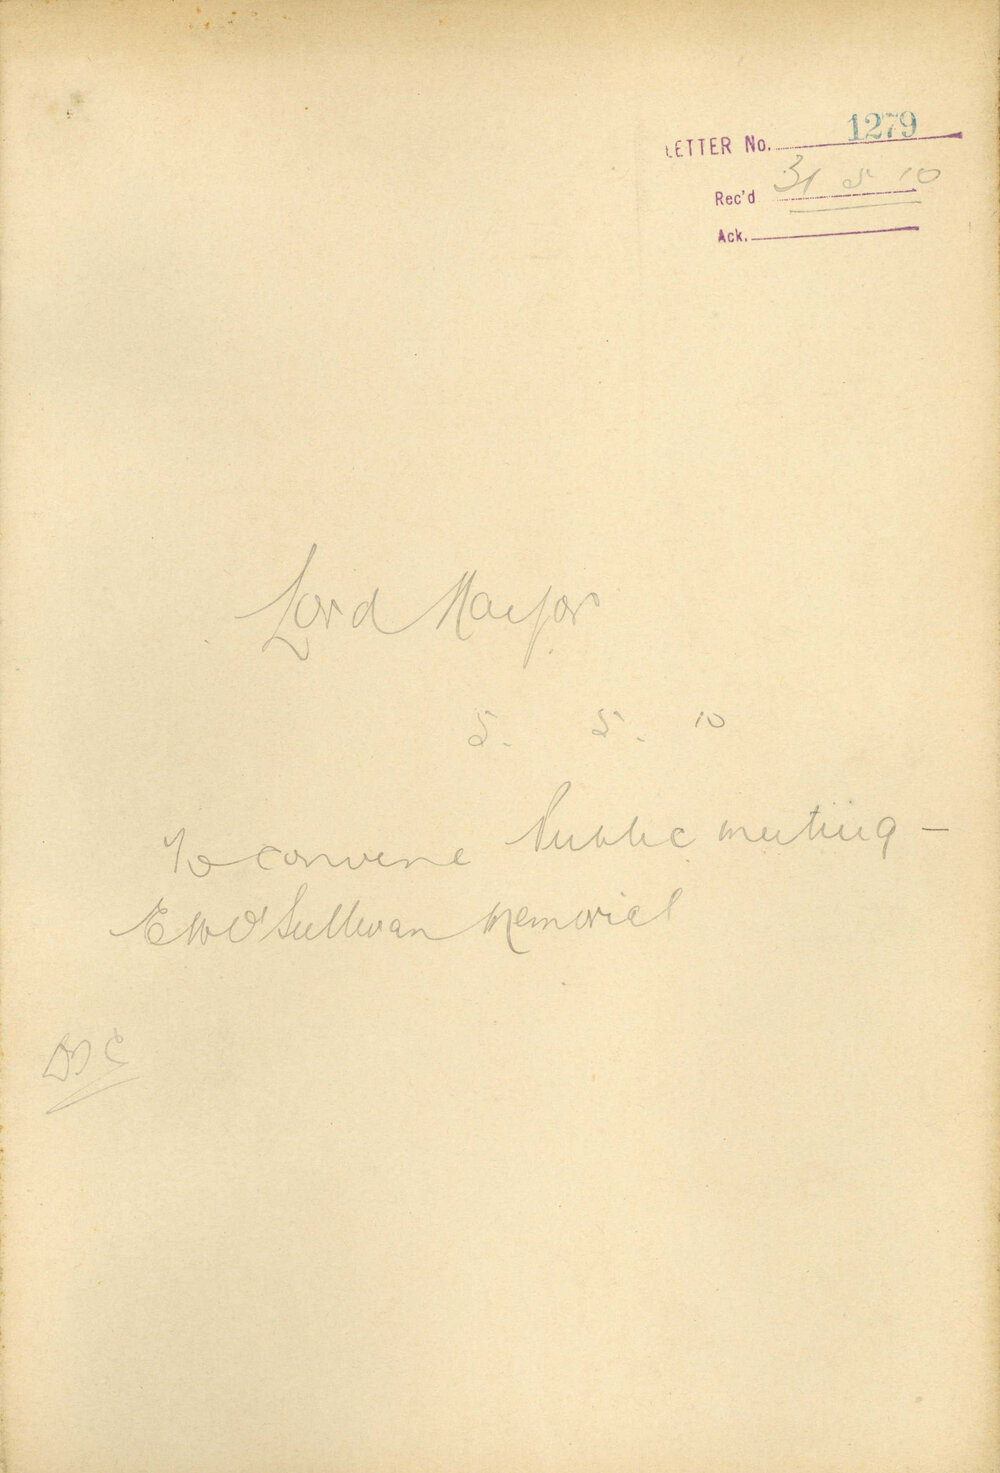 LETTER No. 1279
Rec'd 31 5 10
Ack.
Lord Mayor
5. 5. 10
To convene Public meeting -
E W O'Sullivan Memorial